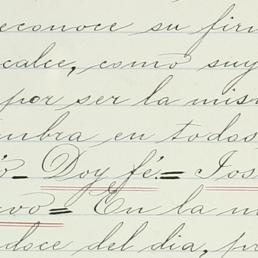 econoce su fir
calce, como suy
por ser la mis
mbra en todas
ó= Doy fé.= Jos
evo= En la m
doce del dia, p